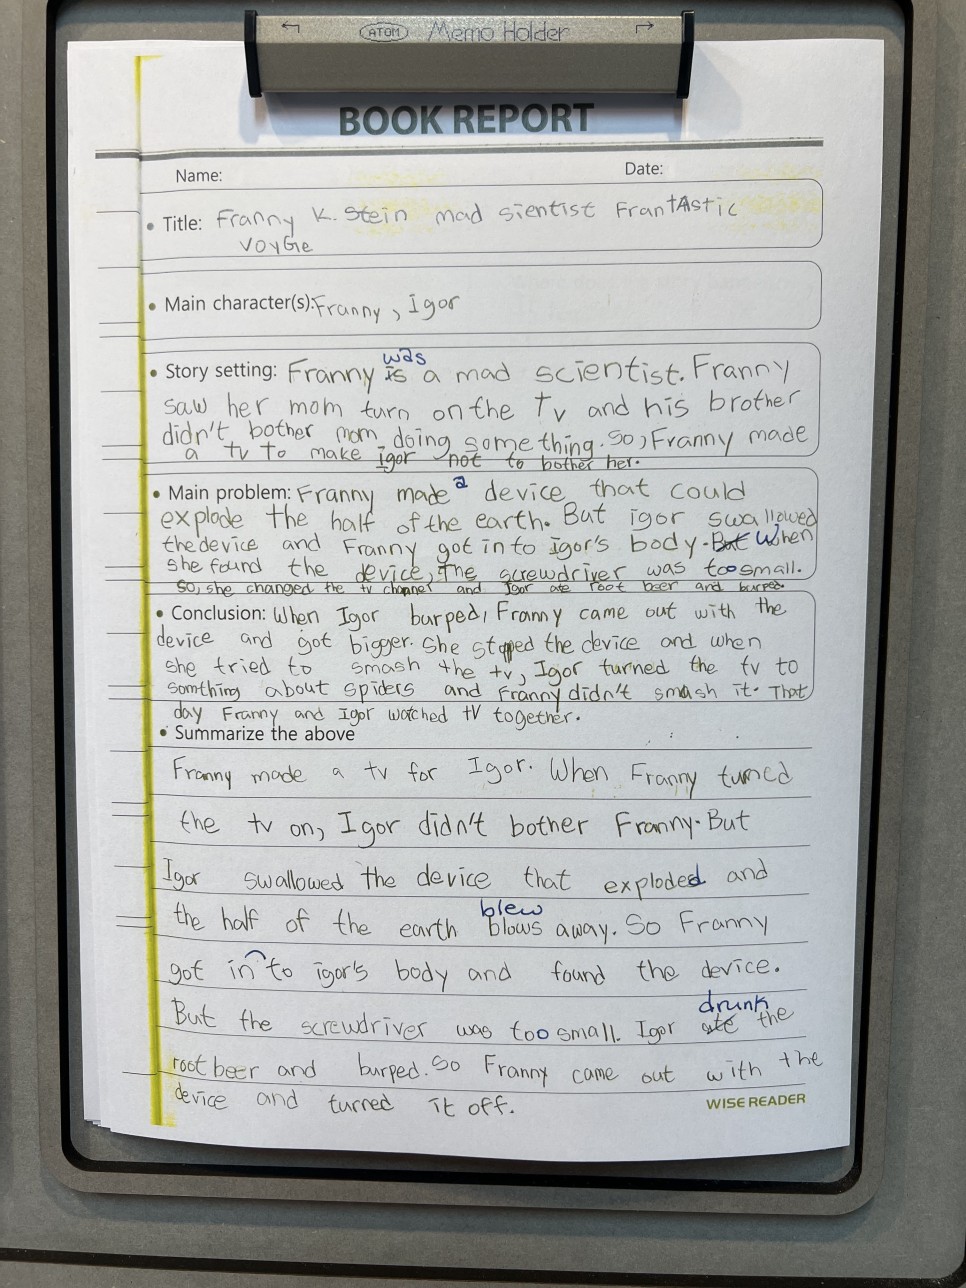 ATOM Memo Holder
BOOK REPORT
Name: Date:
• Title: Franny K. Stein mad sientist FrantAstic
VoyGie
• Main character(s): Franny, Igor
was
• Story setting: Franny is a mad scientist. Franny
saw her mom turn on the Tv and his brother
didn't bother mom doing something. So, Franny made
a tv to make igor not to bother her.
• Main problem: Franny made a device that could
explode the half of the earth. But igor swallowed
the device and Franny got in to Igor's body. But When
she found the device, the screwdriver was too small.
So, she changed the tv channel and Igor ate root beer and burped.
• Conclusion: When Igor burped, Franny came out with the
device and got bigger. She stopped the device and when
she tried to smash the tv, Igor turned the tv to
somthing about spiders and Franny didn't smash it. That
day Franny and Igor watched tV together.
• Summarize the above
Franny made a tv for Igor. When Franny turned
the tv on, Igor didn't bother Franny. But
Igor swallowed the device that exploded and
blew
the half of the earth blows away. So Franny
got in to igor's body and found the device.
drunk
But the screwdriver was too small. Igor ate the
root beer and burped. So Franny came out with the
device and turned it off.
WISE READER